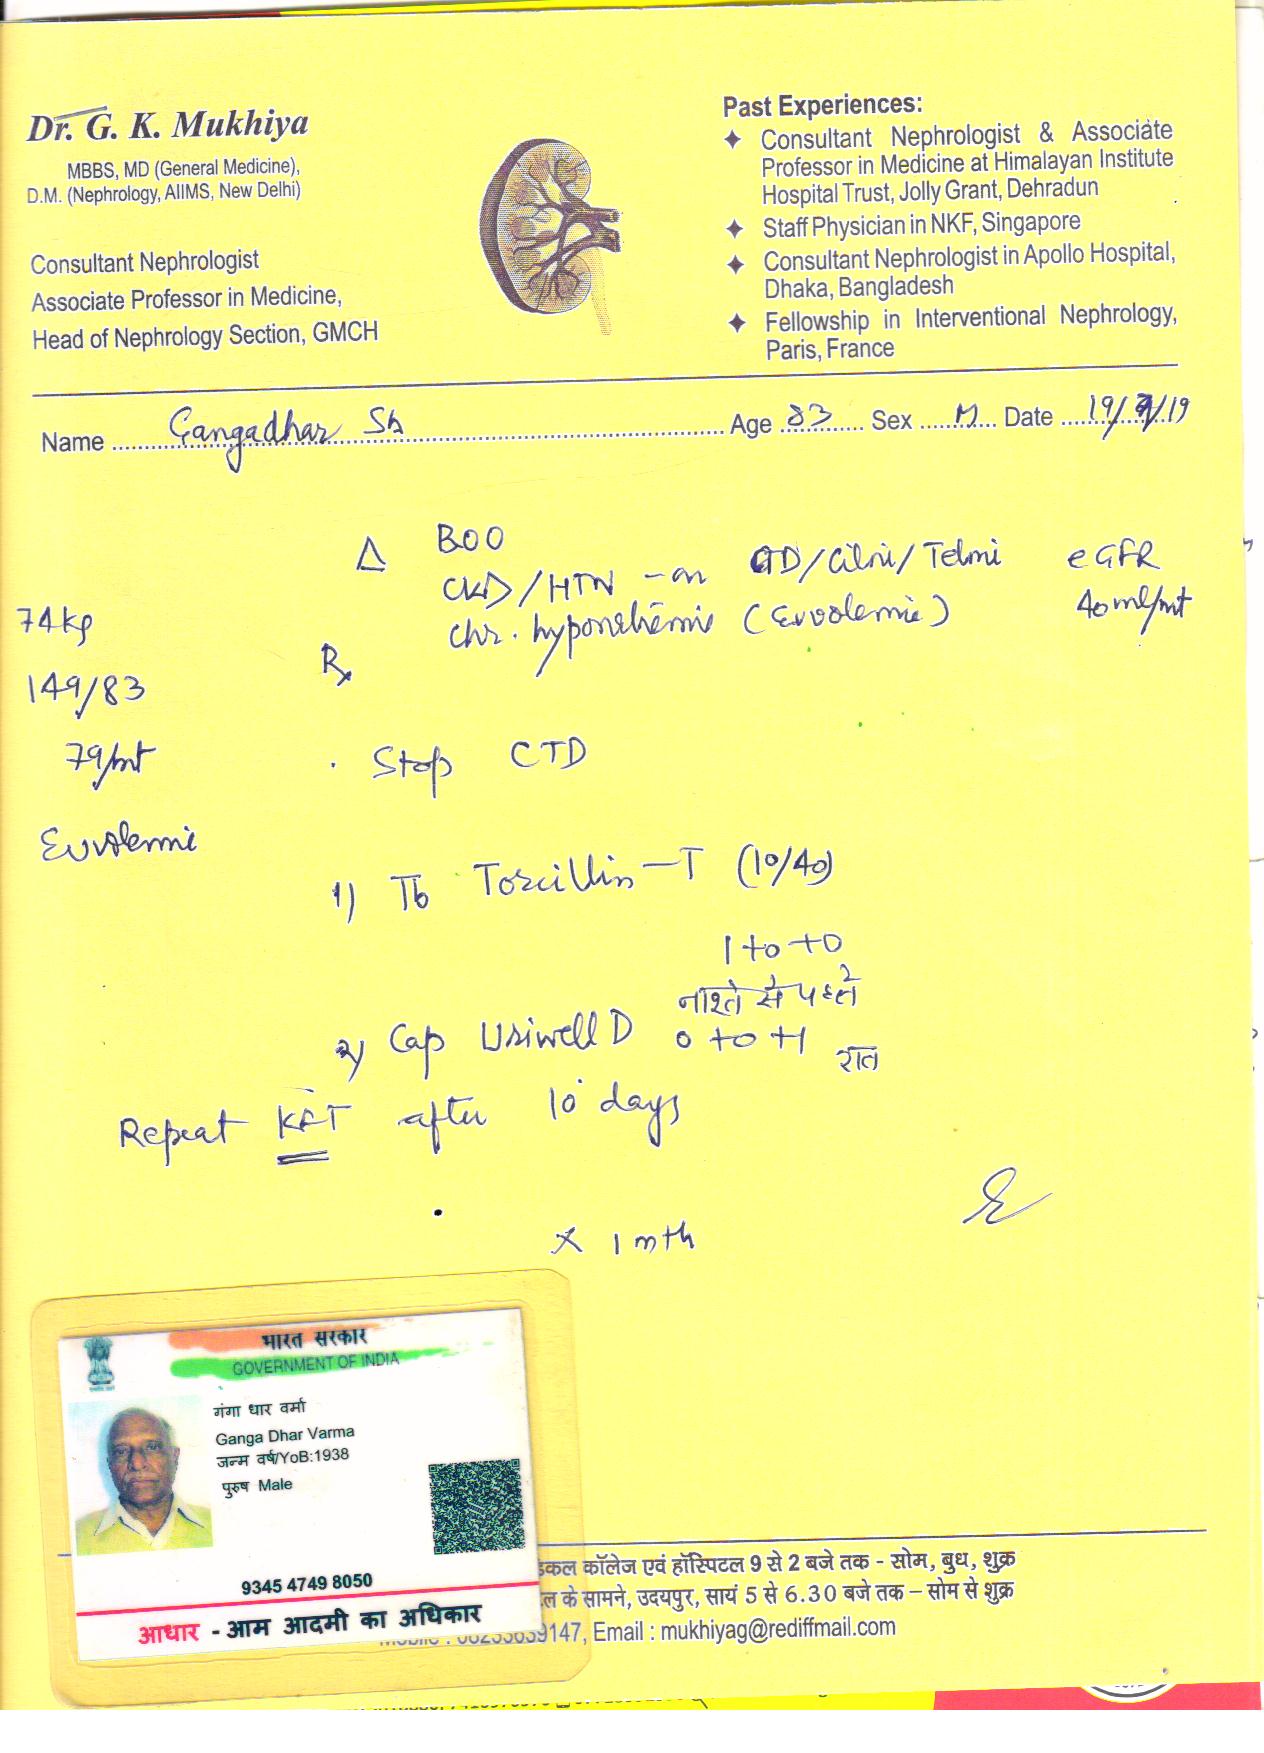 Dr. G. K. Mukhiya
MBBS, MD (General Medicine),
D.M. (Nephrology, AIIMS, New Delhi)
Consultant Nephrologist
Associate Professor in Medicine,
Head of Nephrology Section, GMCH
Past Experiences:
Consultant Nephrologist & Associate
Professor in Medicine at Himalayan Institute
Hospital Trust, Jolly Grant, Dehradun
Staff Physician in NKF, Singapore
Consultant Nephrologist in Apollo Hospital,
Dhaka, Bangladesh
Fellowship in Interventional Nephrology,
Paris, France
Name Gangadhar Sh Age 83 Sex M Date 19/ /19
Δ BOO
CKD/HTN - on CTD/Cilni/Telmi eGFR
chr. (Euvolemic) 40 ml/mt
74 kg
Rx
149/83
79/mt
. Stop CTD
Euvolemic
1) Tb Torcillin-T (10/40)
1+0+0
नाश्ते से पहले
2) Cap Uriwell D 0+0+1 रात
Repeat KFT after 10 days
x 1 mth
भारत सरकार
GOVERNMENT OF INDIA
गंगा धार वर्मा
Ganga Dhar Varma
जन्म वर्ष/YoB:1938
पुरुष Male
9345 4749 8050
आधार - आम आदमी का अधिकार
कॉलेज एवं हॉस्पिटल 9 से 2 बजे तक - सोम, बुध, शुक्र
के सामने, उदयपुर, सायं 5 से 6.30 बजे तक – सोम से शुक्र
9147, Email : mukhiyag@rediffmail.com